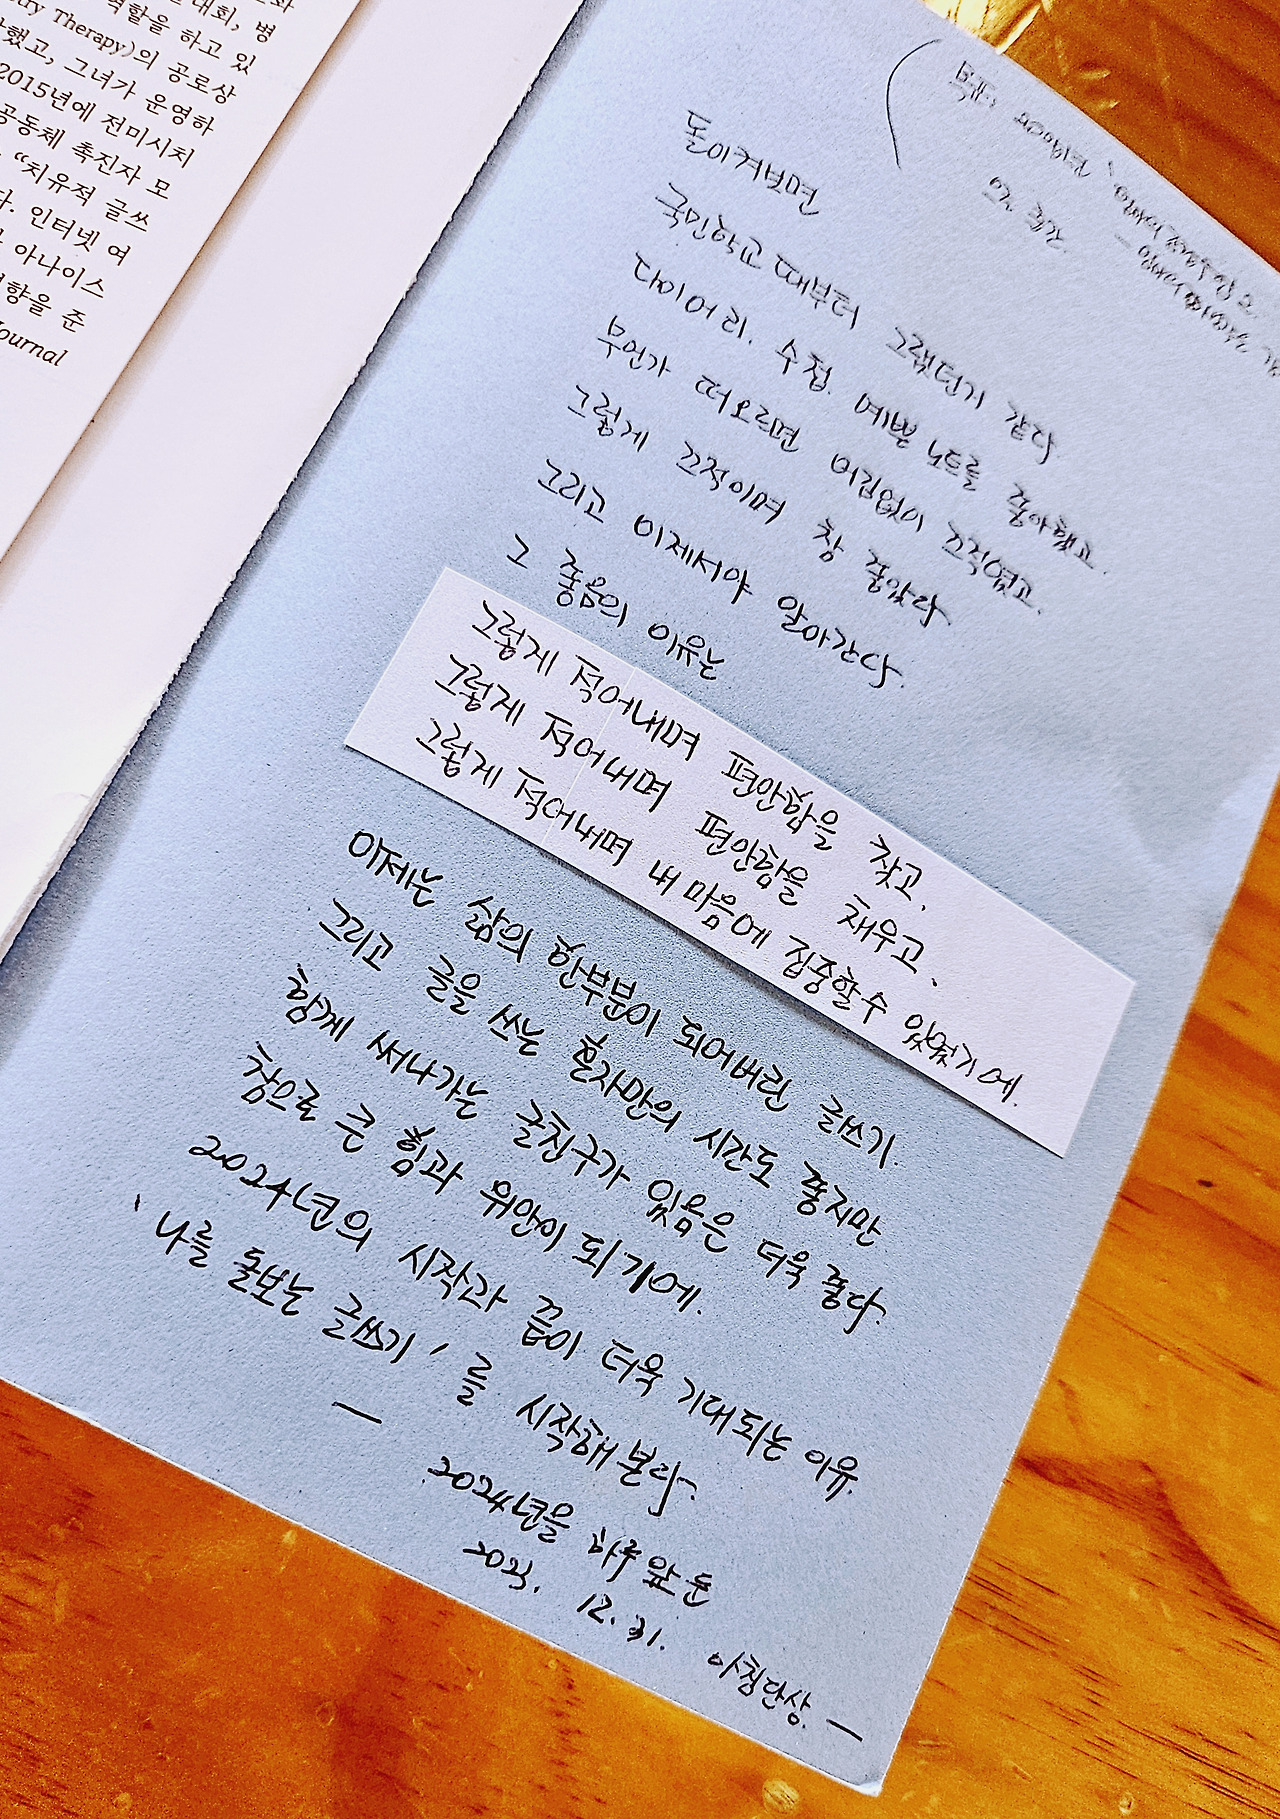 대회, 병
역할을 하고 있
try Therapy)의 공로상
했고, 그녀가 운영하
2015년에 전미시치
공동체 촉진자 모
"치유적 글쓰
다. 인터넷 여
아나이스
향을 준
Journal
돌이켜보면
국민학교 때부터 그랬던거 같다
다이어리. 수첩. 예쁜 노트를 좋아했고.
무언가 떠오르면 어김없이 끄적였고.
그렇게 끄적이며 참 좋았다
그리고 이제서야 알아간다.
그 좋음의 이유는
그렇게 적어내며 편안함을 찾고.
그렇게 적어내며 편안함을 채우고.
그렇게 적어내며 내 마음에 집중할수 있었기에.
이제는 삶의 한부분이 되어버린 글쓰기.
그리고 글을 쓰는 혼자만의 시간도 좋지만
함께 써나가는 글친구가 있음은 더욱 좋다.
참으로 큰 힘과 위안이 되기에.
2024년의 시작과 끝이 더욱 기대되는 이유.
'나를 돌보는 글쓰기' 를 시작해본다.
—
2024년을 하루 앞둔
2023. 12. 31. 아침단상. —